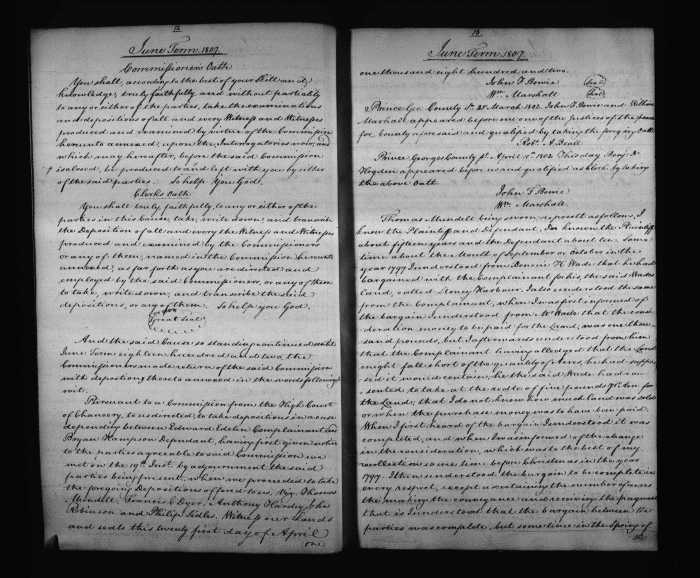 12
June Term 1807
Commissioners Oath
You shall, according to the best of your Skill and
knowledge, truly faithfully and without partiality
to any or either of the parties, take the examinations
and depositions of all and every Witness and Witnesses
produced and examined by virtue of the Commission
hereunto annexed, upon the Interrogatories now, and
which may hereafter, before the said Commission
is closed, be produced to and left with you by either
of the said parties. So help You God.
Clerks Oath
You shall truly, faithfully, to any or either of the
parties in this cause, take, write down, and transcribe
the Deposition of all and every the Witness and Witnesses
produced and examined by the Commissioners
or any of them, named in the Commission hereunto
annexed, as far forth as you are directed and
employed by the said Commissioners, or any of them
to take, write down, and transcribe the said
depositions, or any of them. So help you God.
Great Seal
And the said Cause so standing continued until
June Term eighteen hundred and two, the
Commissioners made return of the said Commission
with depositions thereto annexed in the words following
wit.
Pursuant to a Commission from the High Court
of Chancery, to us directed, to take depositions in a case
depending between Edward Edelin Complainant and
Bryan Hampson Defendant, having first given notice
to the parties agreeable to said Commission we
met on the 19th Inst. by adjournment the said
parties being present, when we proceeded to take
the foregoing Depositions offered to us, Viz. Thomas
Mundell, Francis C Dyer, Anthony Hardey, John
Robinson and Philip Sedles. Witness our hands
and seals this twenty first day of April
one
13
June Term 1807
one thousand eight hundred and two.
John F Bowie (Seal)
Wm. Marshall (Seal)
Prince Geo. County Sc. 27 March 1802. John F. Bowie and William
Marshall appeared before me one of the Justices of the peace
for County aforesaid and qualified by taking the foregoing Oath
Robt. A. Beall
Prince Georges County Sc. April 1802 This day Benj. R
Hogden appeared before us and qualified as Clerk by taking
the above Oath.
John F Bowie
Wm. Marshall
Thomas Mundell being sworn deposeth as follows, I
know the Plaintiff and Defendant, I've known the Plaintiff
about fifteen years and the Defendant about ten. Some
time about the Month of September or October in the
year 1797 I understood from Bennie H Wade that he had
bargained with the Complainant for his, the said Wades
land, called Stoney Harbour. I also understood the same
from the Complainant, when I was first informed of
the bargain I understood from Mr Wade that the consi-
deration money to be paid for the Land, was one thou-
sand pounds, but I afterwards understood from him
that the Complainant having alledged that the Land
might fall short of the quantity of Acres, he had suppo-
sed it would contain, he the said Wade had con-
sented to take at the rate of five pounds per Acre for
the Land; that I do not know how much land was sold
or when the purchase money was to have been paid.
When I first heard of the bargain I understood it was
compleated, and when I was informed of the change
in the consideration, which was to the best of my
recollection some time before Christmas in the year
1797. I then understood the bargain to be complete in
every respect, except ascertaining the number of acres
the making the conveyance and receiving the payment
that is I understood that the bargain between the
parties was complete, but some time in the Spring of
the